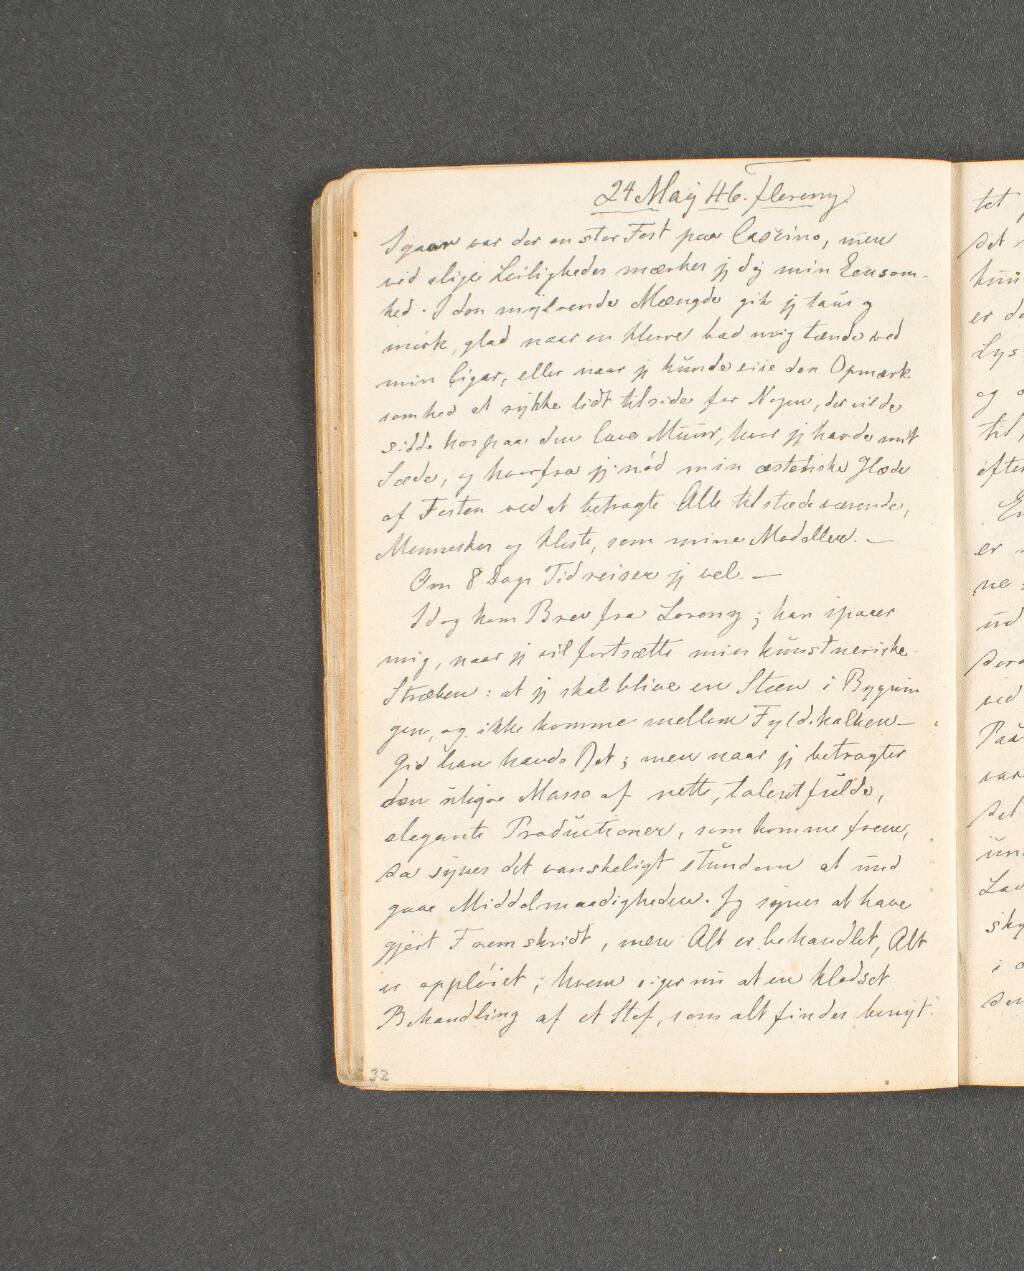 24 Maij 46. Florenz
Igaar var der en stor Fest paa Cascino, men
ved slige Leiligheder mærker jeg dog min Eensom-
hed. I den mylrende Mængde gik jeg taus og
mørk, glad naar en Herre bad mig tænde ved
min Cigar, eller naar jeg kunde vise den Opmærk
somhed at rykke lidt tilside for Nogen, der vilde
sidde hos paa den lave Muur, hvor jeg havde mit
Sæde, og hvorfra jeg nød min æstetiske Glæde
af Festen ved at betragte Alle tilstædeværende,
Mennesker og Heste, som mine Modeller. —
Om 8 Dages Tid reiser jeg vel. —
Idag kom Brev fra Lorenz; han spaaer
mig, naar jeg vil fortsætte min kunstneriske
Stræben: at jeg skal blive en Steen i Bygnin
gen, og ikke komme mellem Fyldkalken —
Gid han havde Ret; men naar jeg betragter
den utlige Masse af nette, talentfulde,
elegante Productioner, som komme frem,
da synes det vanskeligt stundom at und
gaae Middelmaadigheden. Jeg synes at have
gjort Fremskridt, men Alt er behandlet, Alt
er oppløiet; hvem siger mi at en klodset
Behandling af et Stof, som alt findes benyt
32
tet
det
er
Lys
og
til,
efter
er
ne
ud
ved
var
det
i